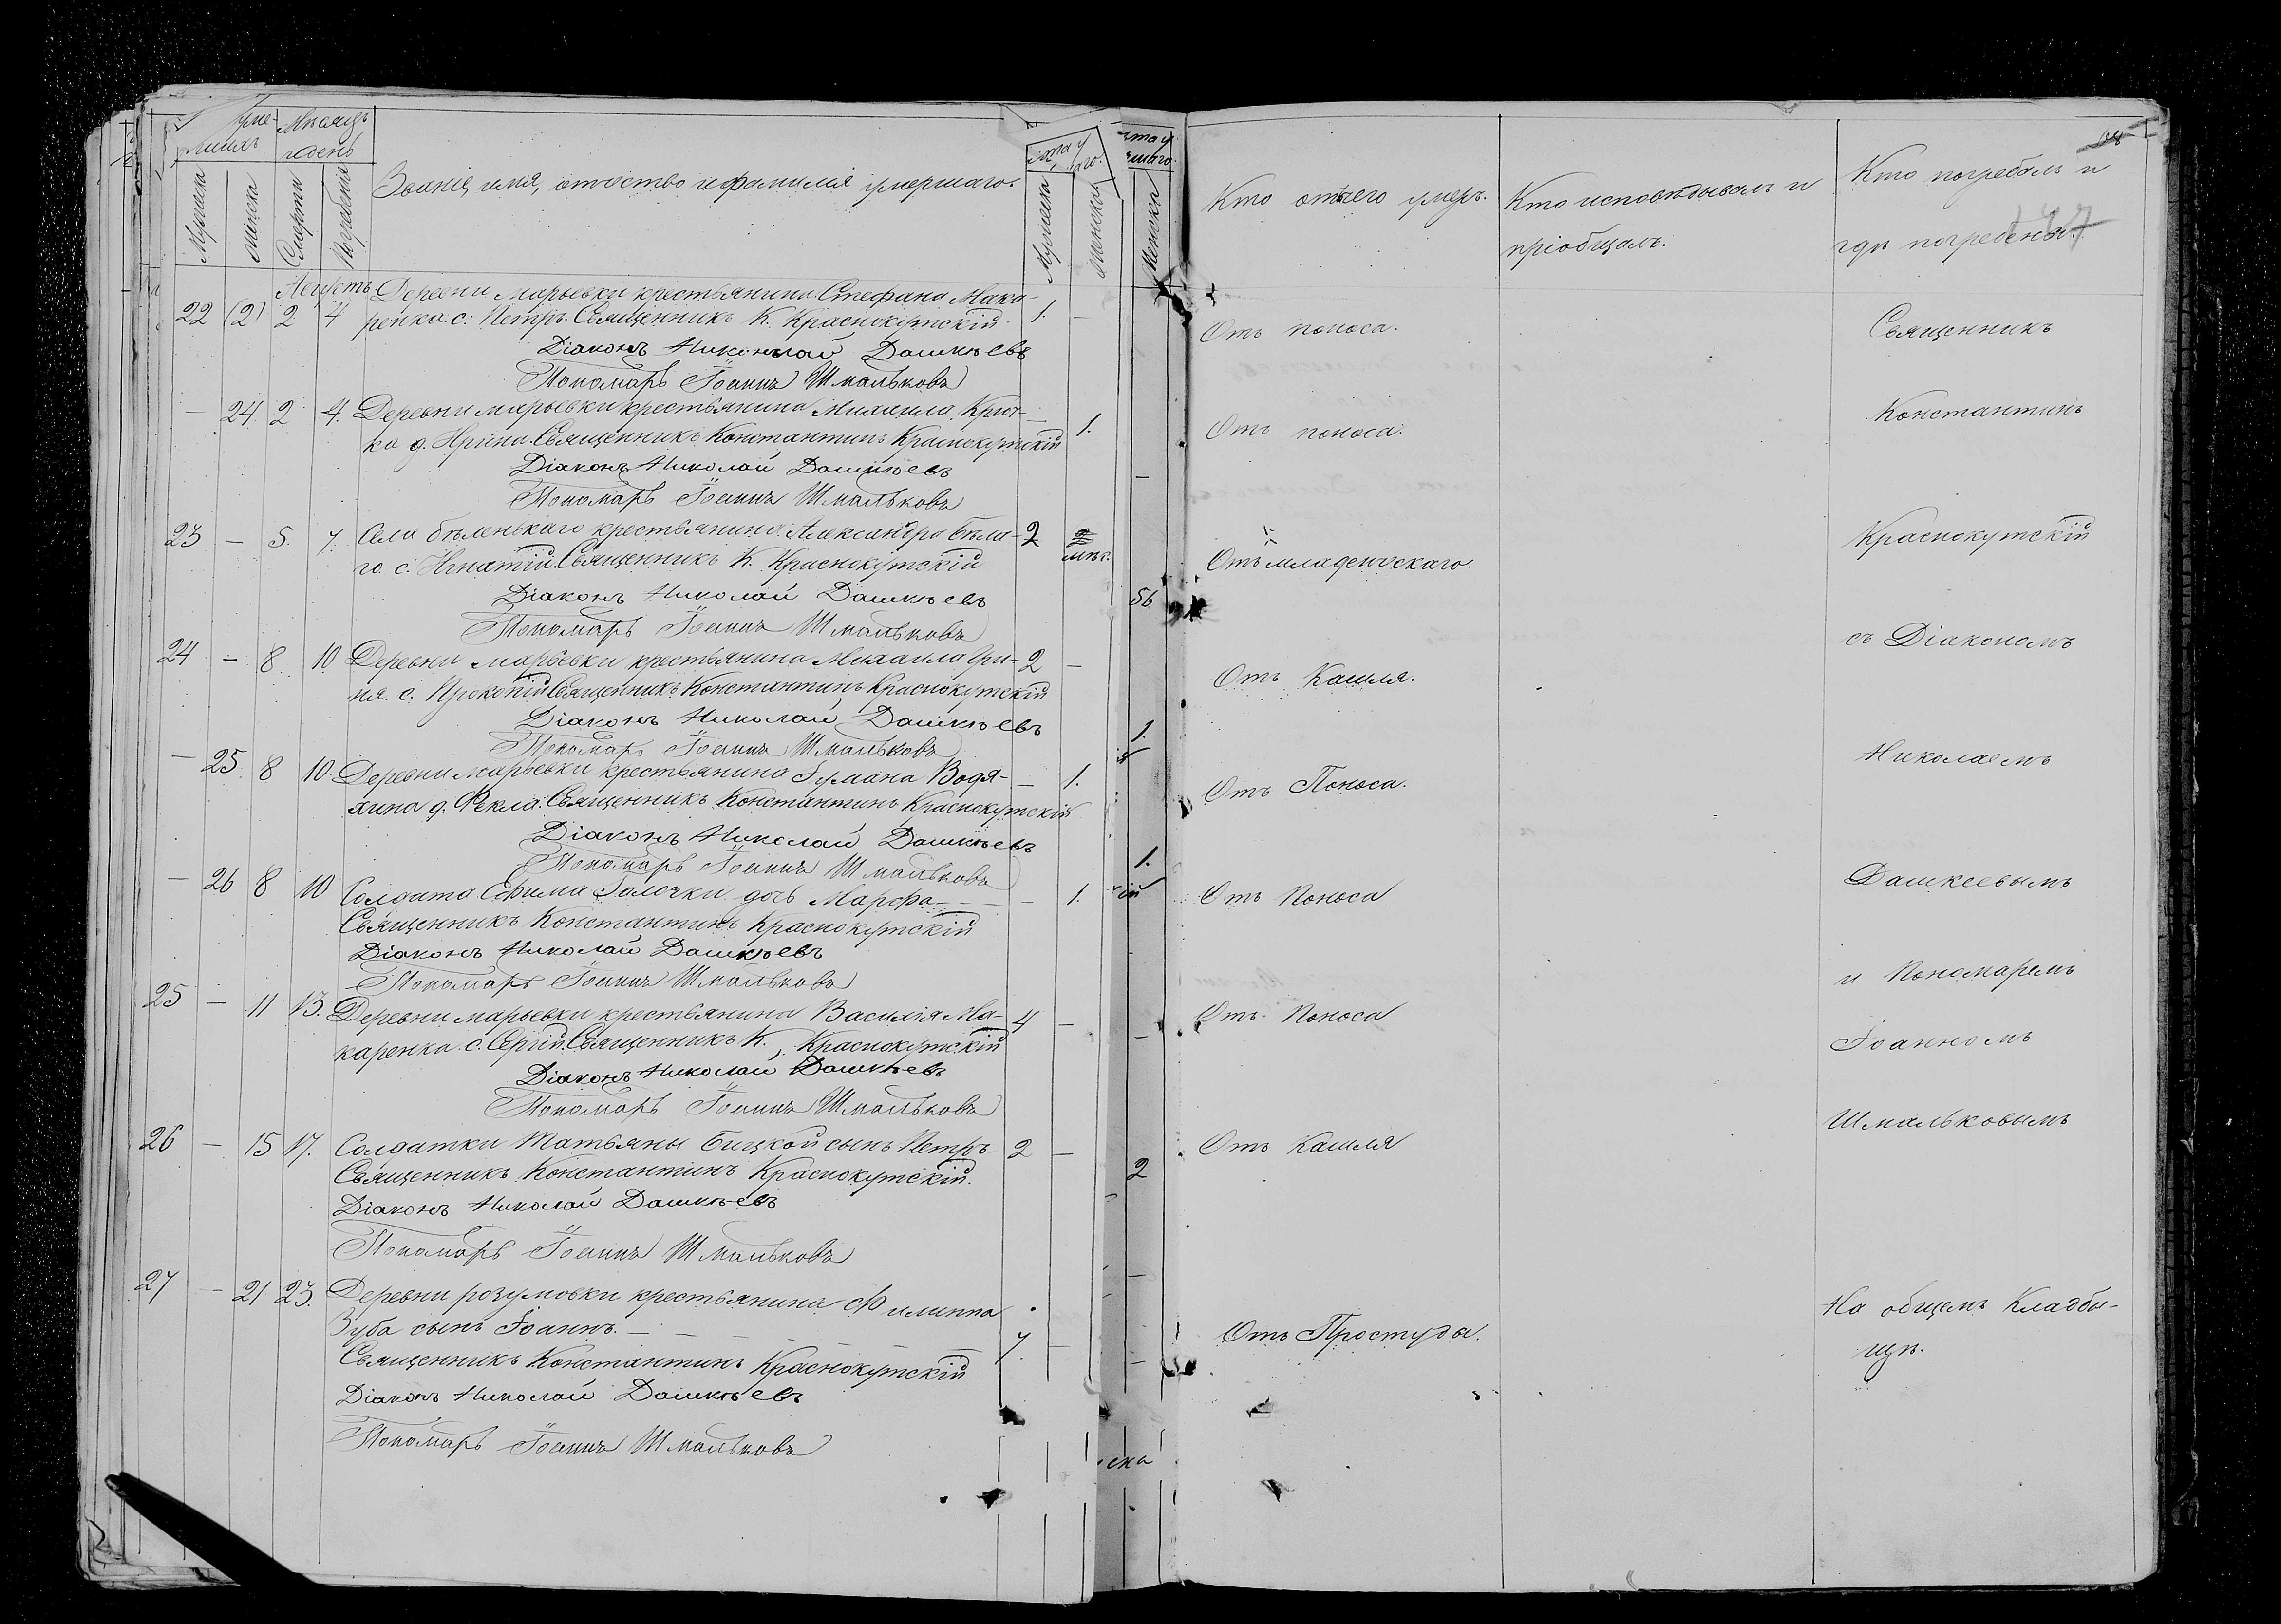 Мѣсяцъ
и день
Мужеска
Женска
Смерти
Погребенія
Званіе, имя, отчество и фамилія умершаго.
Мужеска
Женска
Августъ
22 (2) 2 4 Деревни Марьевки крестьянина Стефана Мака-
ренка с: Петръ. Священникъ К. Краснокутскій 1. —
Діаконъ Николай Дашкѣевъ
Пономарь Іоаннъ Шмальковъ
— 24 2 4. Деревни Марьевки крестьянина Михаила Крюч-
ка д. Ирина. Священникъ Константинъ Краснокутскій — 1.
Діаконъ Николай Дашкѣевъ
Пономарь Іоаннъ Шмальковъ
23 — 5. 7. Села бѣленькаго крестьянина Александра бѣла- 2
го с. Игнатій. Священникъ К. Краснокутскій мѣс.
Діаконъ Николай Дашкѣевъ
Пономарь Іоаннъ Шмальковъ
24 — 8 10 Деревни Марьевки крестьянина Михаила Гри- 2 —
ня с. Прокопій Священникъ Константинъ Краснокутскій
Діаконъ Николай Дашкѣевъ
Пономарь Іоаннъ Шмальковъ
— 25 8 10. Деревни Марьевки крестьянина Водя- — 1.
д. Фекла. Священникъ Константинъ Краснокутскій
Діаконъ Николай Дашкѣевъ
Пономарь Іоаннъ Шмальковъ
— 26 8 10 Солдата Ефима Галочки дочь Марфа — — 1.
Священникъ Константинъ Краснокутскій
Діаконъ Николай Дашкѣевъ
Пономарь Іоаннъ Шмальковъ
25 — 11 13. Деревни Марьевки крестьянина Василія Ма- 4 —
каренка с. Сергій. Священникъ К. Краснокутскій
Діаконъ Николай Дашкѣевъ
Пономарь Іоаннъ Шмальковъ
26 — 15 17. Солдатки Татьяны Бицкой сынъ Петръ 2 —
Священникъ Константинъ Краснокутскій.
Діаконъ Николай Дашкѣевъ
Пономарь Іоаннъ Шмальковъ
27 — 21 23. Деревни розумовки крестьянина Филиппа
Зуба сынъ Іоаннъ. — 7. —
Священникъ Константинъ Краснокутскій
Діаконъ Николай Дашкѣевъ
Пономарь Іоаннъ Шмальковъ
Женска
56
1.
1.
2
Кто отъ чего умеръ.
Отъ поноса.
Отъ поноса.
Отъ младенческаго.
Отъ Кашля.
Отъ Поноса.
Отъ Поноса
Отъ Поноса
Отъ Кашля
Отъ Простуды.
Кто исповѣдывалъ и
пріобщалъ.
Кто погребалъ и
гдѣ погребены.
Священникъ
Константинъ
Краснокутскій
съ Діакономъ
Николаемъ
Дашкеевымъ
и Пономаремъ
Іоанномъ
Шмальковымъ
На общемъ Кладби-
щѣ.